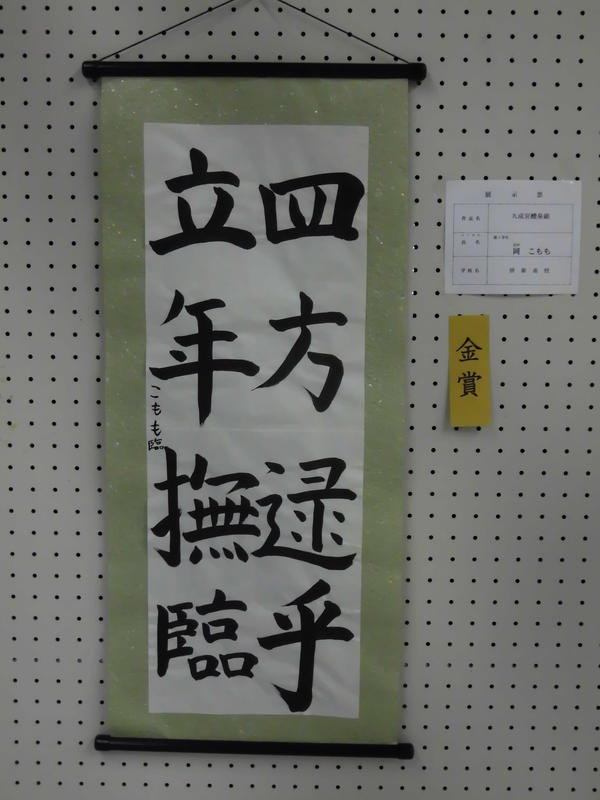 四方逮乎
立年撫臨
こもも臨
展示票
作品名 九成宮醴泉銘
氏名 岡 こもも
学校名
金賞